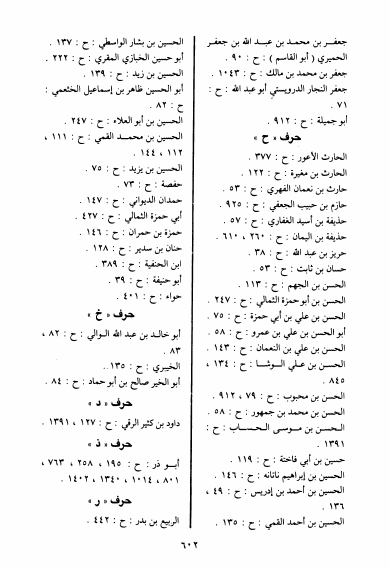 جعفـر بن محمـد بن عبـد الله بن جعفر
الحميري ( أبو القاسم ) : ح : ٩٠ .
جعفر بن محمد بن مالك : ح : ١٠٤٣ .
جعفر النجار الدرويستي أبو عبد الله : ح :
٧١ .
أبو جميلة : ح : ٩١٢ .
حرف « ح »
الحارث الأعور : ح : ٣٧٧ .
الحارث بن مغيرة : ح : ١٢٢ .
حارث بن نعمان الفهري : ح : ٥٣ .
حازم بن حبيب الجعفي : ح : ٩٢٥ .
حذيفة بن أسيد الغفاري : ح : ٥٧ .
حذيفة بن اليمان : ح : ٢٦٠ ، ٦١٠ .
حريز بن عبد الله : ح : ٣٨ .
حسان بن ثابت : ح : ٥٣ .
الحسن بن الجهم : ح : ١١٣ .
الحسن بن أبو حمزة الثمالي : ح : ٢٤٧ .
الحسن بن علي بن أبي حمزة : ح : ٧٥ .
أبو الحسن بن علي بن عمرو : ح : ٥٨ .
الحسن بن علي بن النعمان : ح : ١٤٣ .
الحسن بن علـي الـوشـا : ح : ١٣٤ ،
٨٤٥ .
الحسن بن محبوب : ح : ٧٩ ، ٩١٢ .
الحسن بن محمد بن جمهور : ح : ٥٨ .
الحـسـن بن مـوسـى الحـسـاب : ح :
١٣٩١ .
حسين بن أبي فاختة : ح : ١١٩ .
الحسين بن إبراهيم ناتانه : ح : ١٤٦ .
الحسين بن أحمد بن إدريس : ح : ٤٩ ،
١٣٦ .
الحسين بن أحمد القمي : ح : ١٣٥ .
الحسين بن بشار الواسطي : ح : ١٣٧ .
أبو حسين الخبازي المقري : ح : ٢٢٢ .
الحسين بن زيد : ح : ١٣٩ .
أبو الحسين ظاهر بن إسماعيل الخثعمي :
ح : ٨٢ .
الحسين بن أبو العلاء : ح : ٢٤٧ .
الحسين بن محمـد القمي : ح : ١١١ ،
١١٢ ، ١٤٤ .
الحسين بن يزيد : ح : ٧٥ .
حفصة : ح : ٧٣ .
حمدان الديواني : ح : ١٤٧ .
أبي حمزة الثمالي : ح : ٤٢٧ .
حمزة بن حمران : ح : ١٤٦ .
حنان بن سدير : ح : ١٢٨ .
ابن الحنفية : ح : ٣٨٩ .
أبو حنيفة : ح : ٣٩ .
حواء : ح : ٤٠١ .
حرف « خ »
أبو خالد بن عبد الله الوالي : ح : ٨٢ ،
٨٣ .
الخيبري : ح : ١٣٥ ..
أبو الخير صالح بن أبو حماد : ح : ٨٤ .
حرف « د »
داود بن كثير الرقي : ح : ١٢٧ ، ١٣٩١ .
حرف « ذ »
أبـو ذر : ح : ١٩٥ ، ٢٥٨ ، ٧٦٣ ،
٨٠١ ، ١٠١٤ ، ١٣٤٠ ، ١٤٠٢ .
حرف « ر »
الربيع بن بدر : ح : ٤٤٢ .
٦٠٢